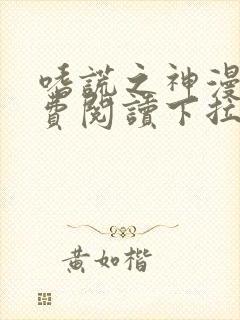 嗜謊之神漫
費閱讀下拉
黃如楷